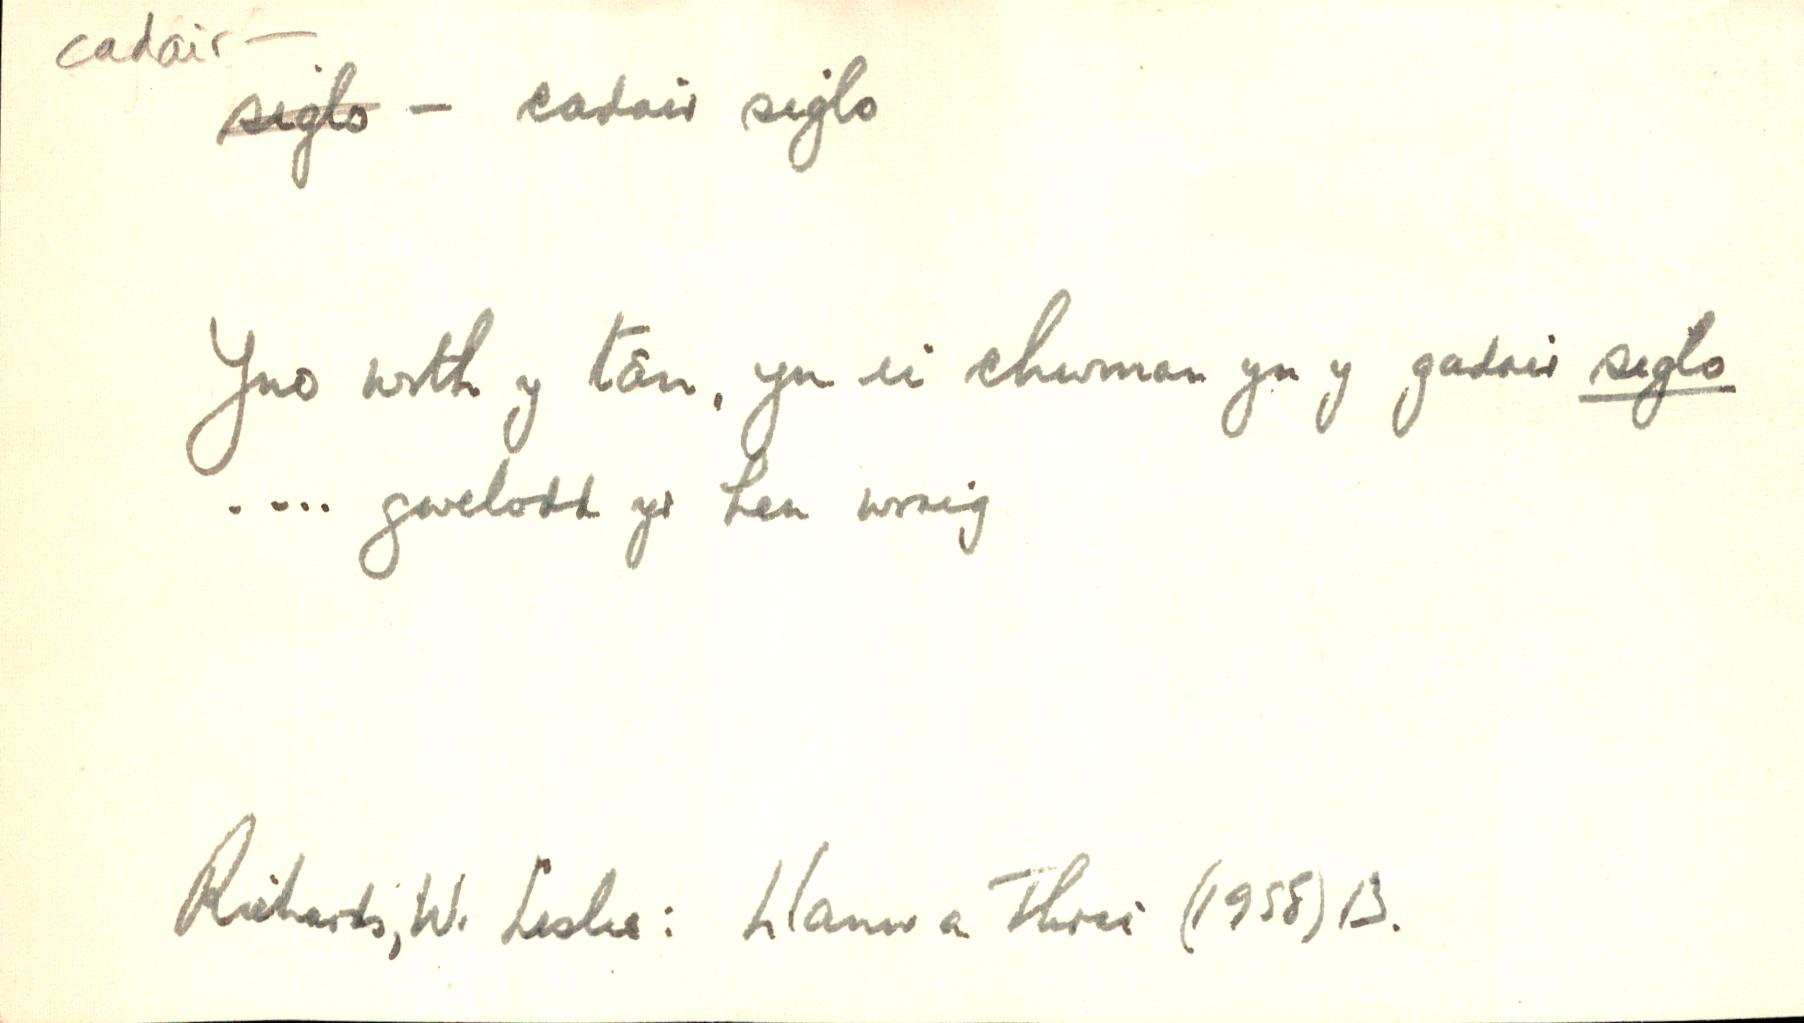 cadair —
siglo — cadair siglo
Yno wrth y tân, yn ei chwman yn y gadair siglo
.... gwelodd yr hen wraig
Richards, W. Leslie: Llanw a Thrai (1958) 13.